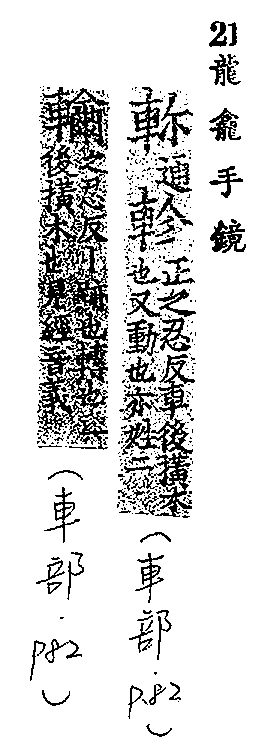 21 龍龕手鏡
通軫正之忍反車後橫木
也又動也亦姓二
(車部.P.82)
之忍反 也轉也
車後橫木也見經音義
(車部.P82)